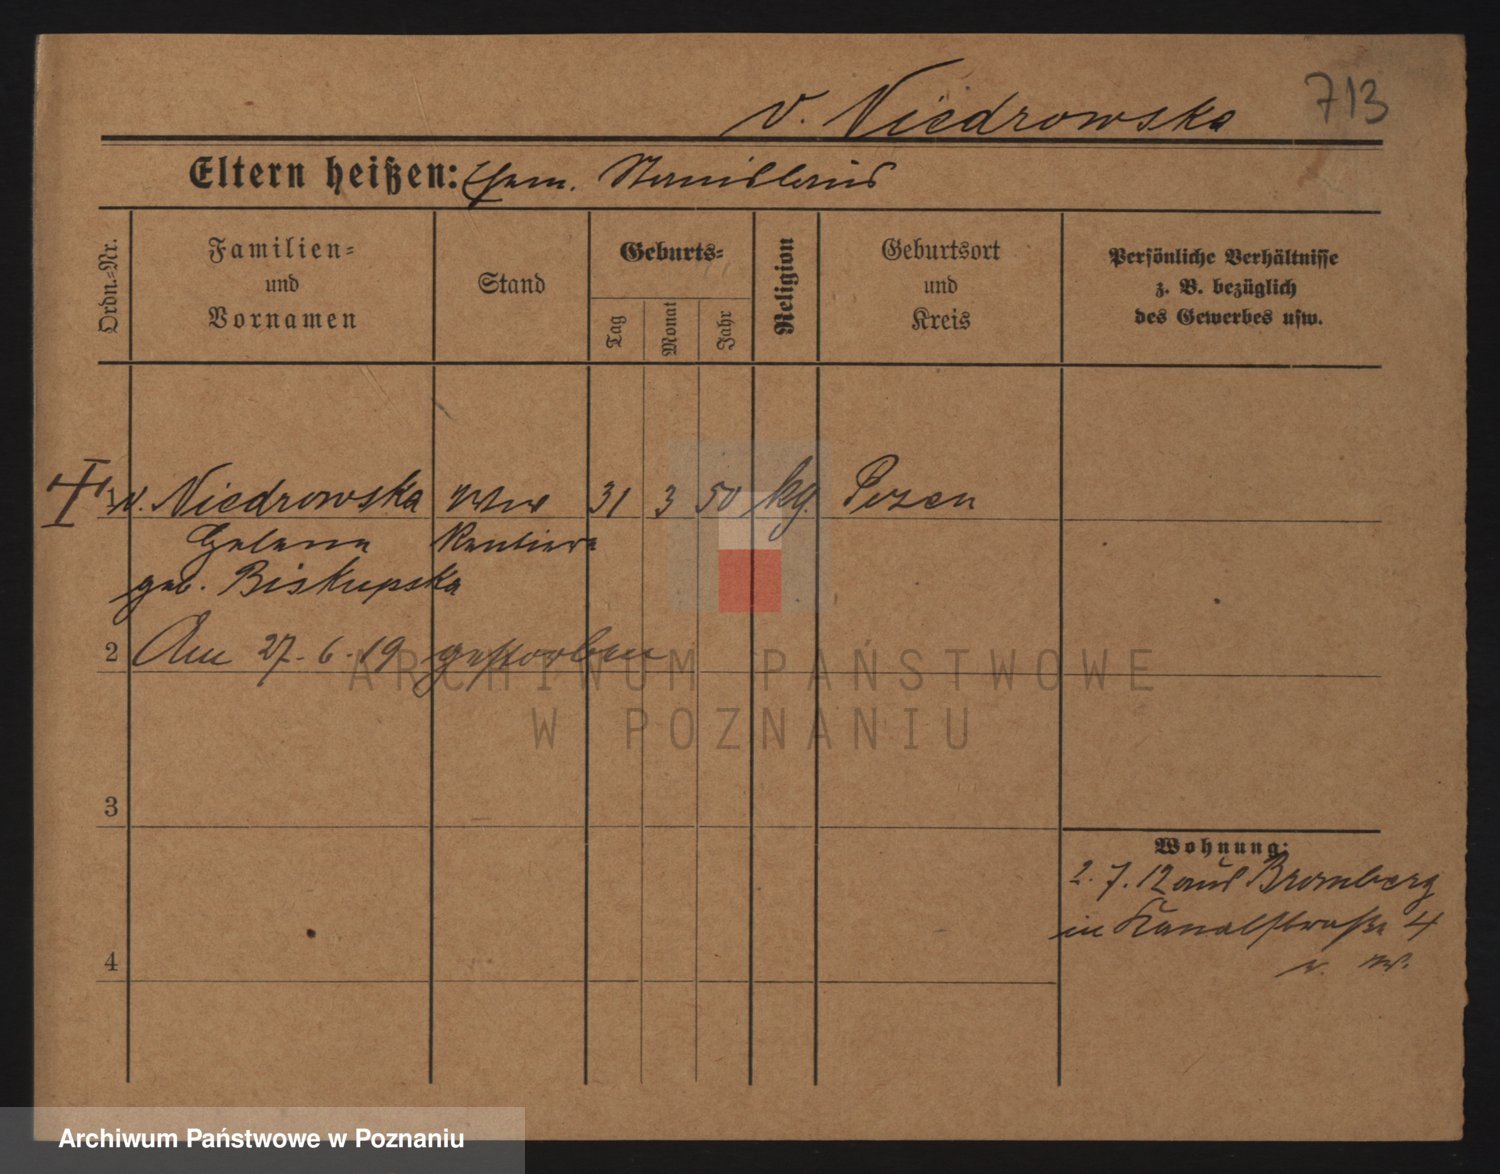 v. Niedrowska
713
Eltern heißen: Ehem. Stanislaus
Ordn.-Nr.
Familien-
und
Vornamen
Stand
Geburts-
Tag
Monat
Jahr
Religion
Geburtsort
und
Kreis
Persönliche Verhältnisse
z. B. bezüglich
des Gewerbes usw.
1 v. Niedrowska Wtw 31 3 50 kg. Posen
Helene Rentiere
geb. Biskupska
2 Am 27.6.19 gestorben
ARCHIWUM PAŃSTWOWE
W POZNANIU
3
Wohnung:
2. 7. 12 aus Bromberg
in Kanalstraße 4
4
Archiwum Państwowe w Poznaniu